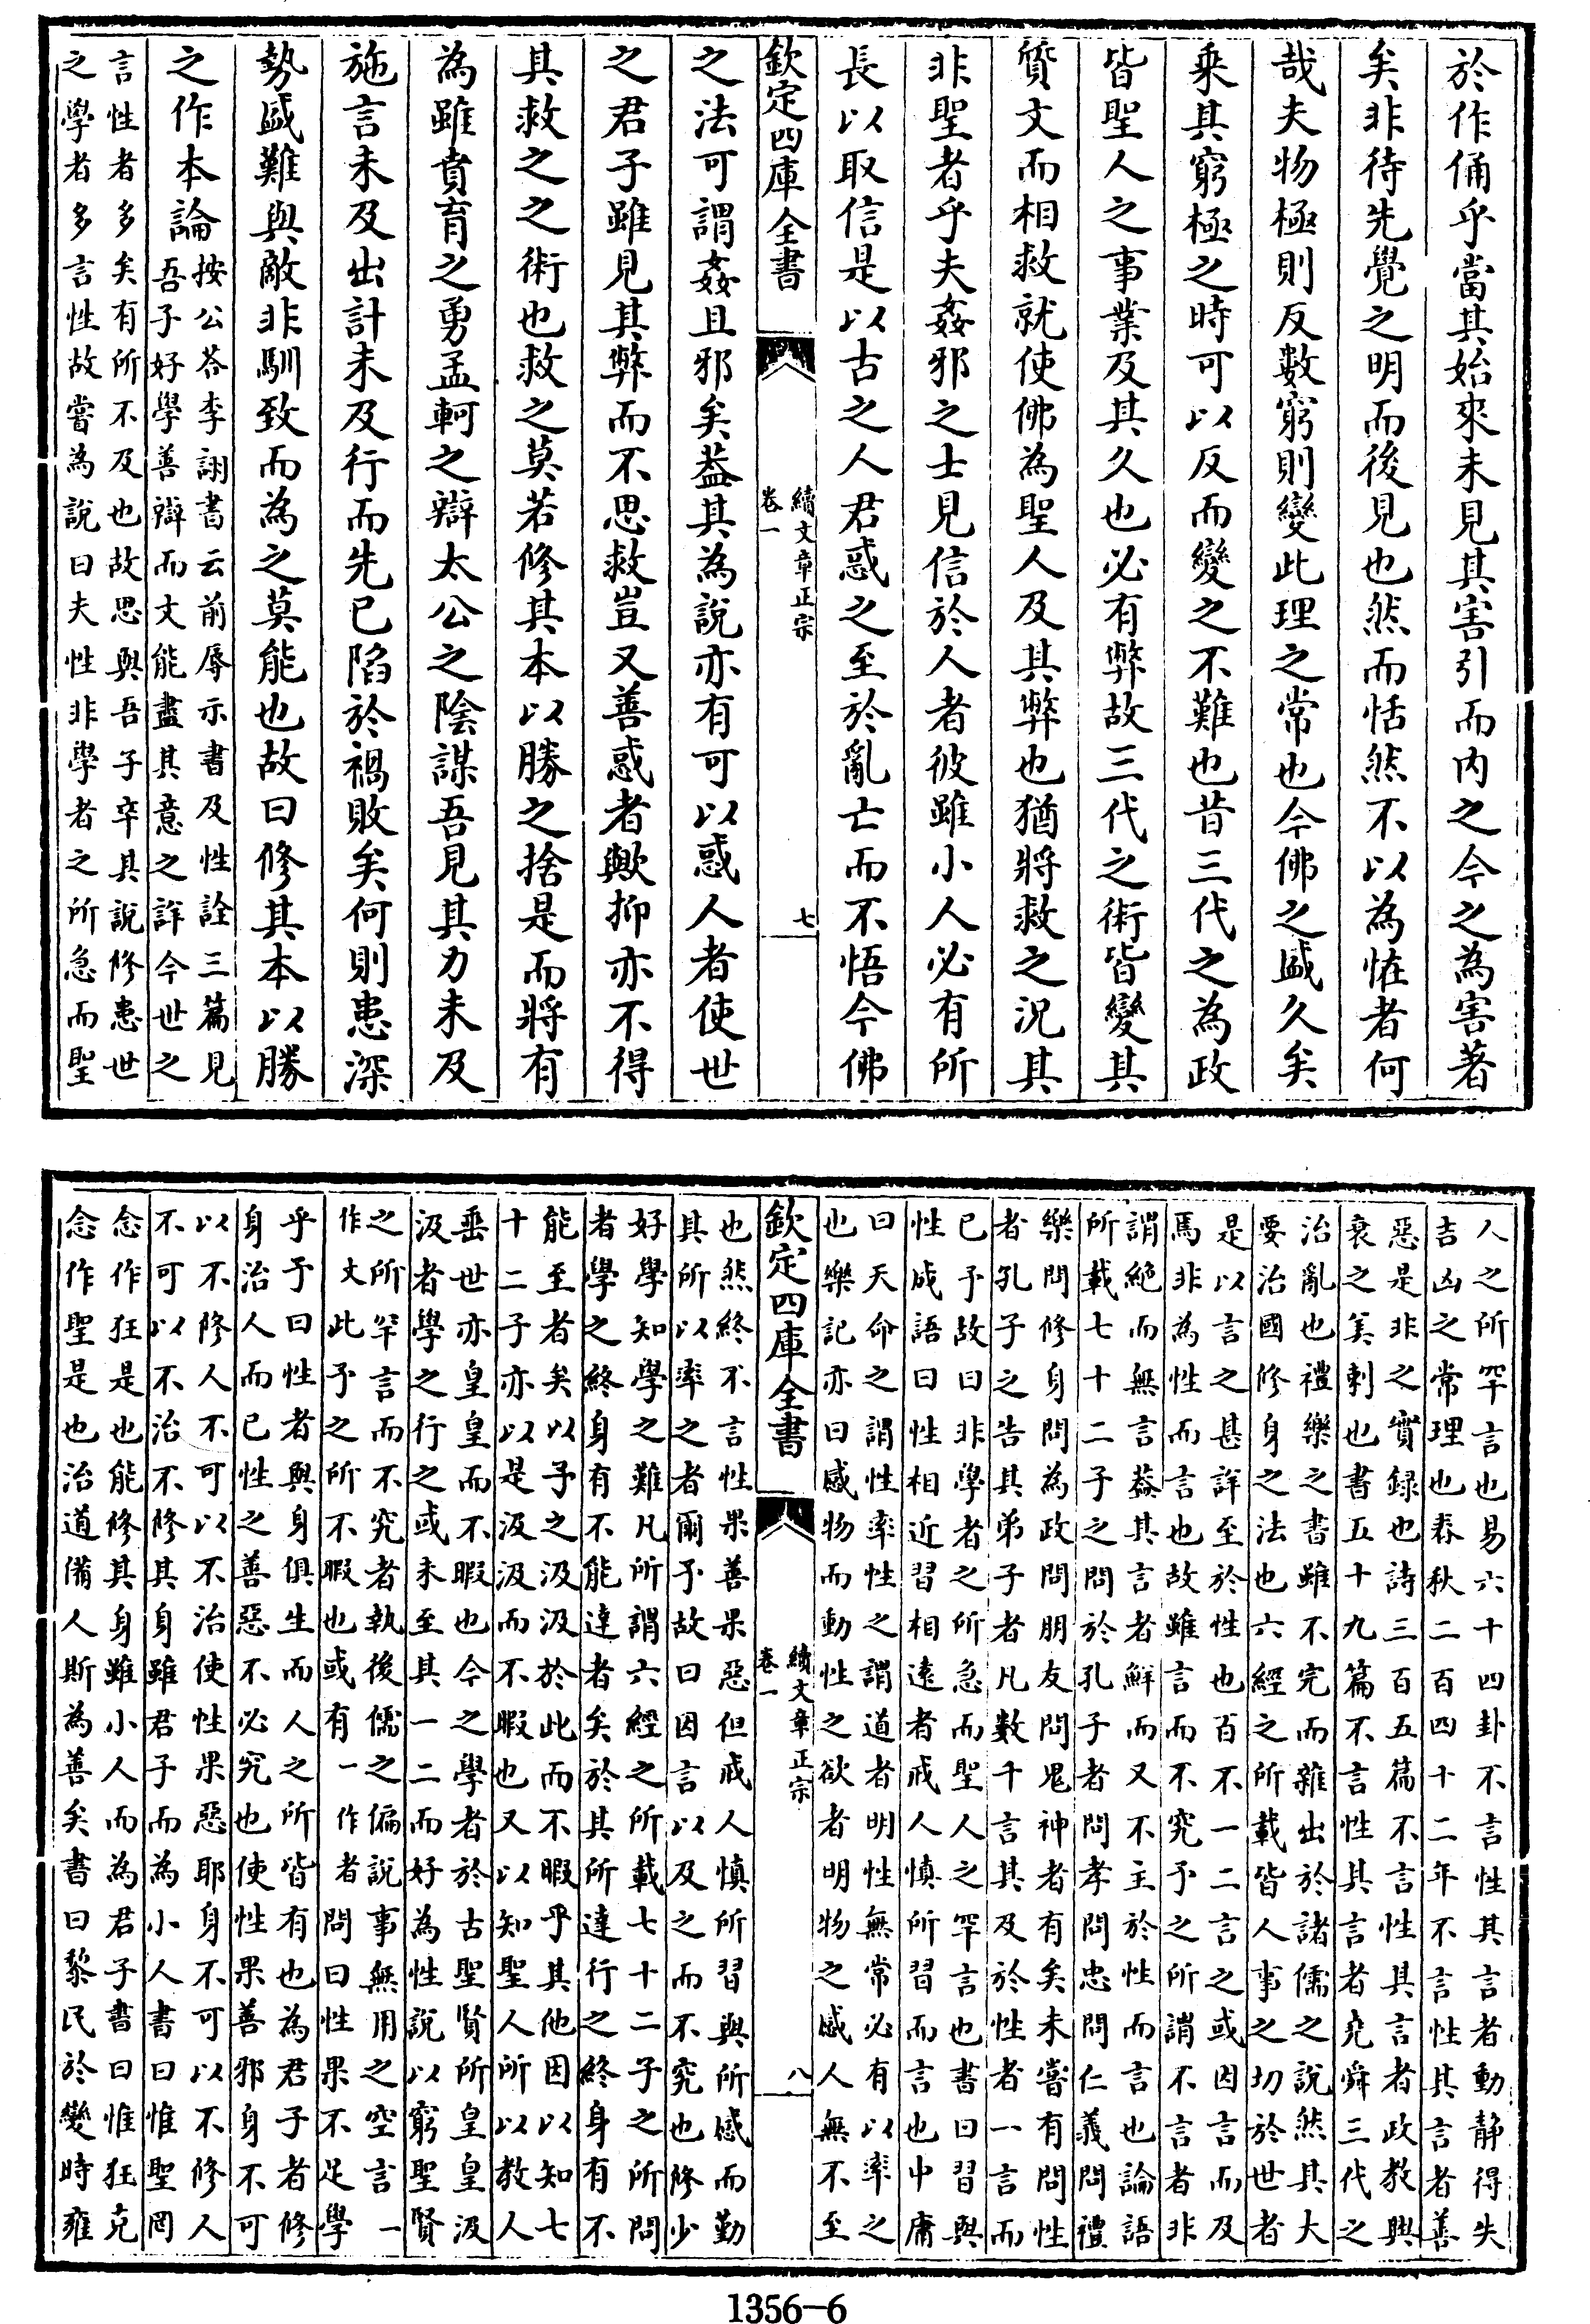 於作俑乎當其始來未見其害引而内之今之為害著
矣非待先覺之明而後見也然而恬然不以為怪者何
哉夫物極則反數窮則變此理之常也今佛之盛久矣
乘其窮極之時可以反而變之不難也昔三代之為政
皆聖人之事業及其久也必有弊故三代之術皆變其
質文而相救就使佛為聖人及其弊也猶將救之況其
非聖者乎夫姦邪之士見信於人者彼雖小人必有所
長以取信是以古之人君惑之至於亂亡而不悟今佛
欽定四庫全書
續文章正宗
卷一
七
之法可謂姦且邪矣葢其為說亦有可以惑人者使世
之君子雖見其弊而不思救豈又善惑者歟抑亦不得
其救之之術也救之莫若修其本以勝之捨是而將有
為雖賁育之勇孟軻之辯太公之陰謀吾見其力未及
施言未及出計未及行而先已陷於禍敗矣何則患深
勢盛難與敵非馴致而為之莫能也故曰修其本以勝
之作本論
按公荅李詡書云前辱示書及性詮三篇見
吾子好學善辯而文能盡其意之詳今世之
言性者多矣有所不及也故思與吾子卒其說修患世
之學者多言性故嘗為說曰夫性非學者之所急而聖
人之所罕言也易六十四卦不言性其言者動静得失
吉凶之常理也春秋二百四十二年不言性其言者善
惡是非之實録也詩三百五篇不言性其言者政教興
衰之美刺也書五十九篇不言性其言者堯舜三代之
治亂也禮樂之書雖不完而雜出於諸儒之說然其大
要治國修身之法也六經之所載皆人事之切於世者
是以言之甚詳至於性也百不一二言之或因言而及
焉非為性而言也故雖言而不究予之所謂不言者非
謂絶而無言葢其言者鮮而又不主於性而言也論語
所載七十二子之問於孔子者問孝問忠問仁義問禮
樂問修身問為政問朋友問鬼神者有矣未嘗有問性
者孔子之告其弟子者凡數千言其及於性者一言而
已予故曰非學者之所急而聖人之罕言也書曰習與
性成語曰性相近習相逺者戒人慎所習而言也中庸
曰天命之謂性率性之謂道者明性無常必有以率之
也樂記亦曰感物而動性之欲者明物之感人無不至
欽定四庫全書
續文章正宗
卷一
八
也然終不言性果善果惡但戒人慎所習與所感而勤
其所以率之者爾予故曰因言以及之而不究也修少
好學知學之難凡所謂六經之所載七十二子之所問
者學之終身有不能達者矣於其所達行之終身有不
能至者矣以予之汲汲於此而不暇乎其他因以知七
十二子亦以是汲汲而不暇也又以知聖人所以教人
垂世亦皇皇而不暇也今之學者於古聖賢所皇皇汲
汲者學之行之或未至其一二而好為性說以窮聖賢
之所罕言而不究者執後儒之偏說事無用之空言一
作文此予之所不暇也或有一作者問曰性果不足學
乎予曰性者與身俱生而人之所皆有也為君子者修
身治人而已性之善惡不必究也使性果善邪身不可
以不修人不可以不治使性果惡耶身不可以不修人
不可以不治不修其身雖君子而為小人書曰惟聖罔
念作狂是也能修其身雖小人而為君子書曰惟狂克
念作聖是也治道備人斯為善矣書曰黎民於變時雍
1356-6